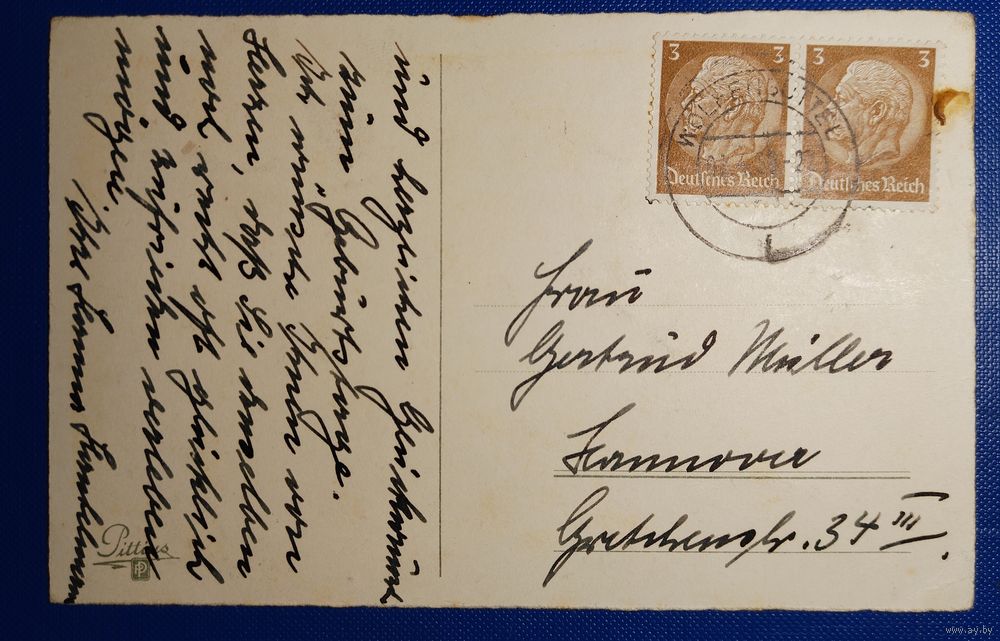 3 3
Deutsches Reich
3 3
Deutsches Reich
WOLFENBÜTTEL
und herzlichen Glückwunsch
zum Geburtstage.
Ich wünsche Ihnen von
Herzen, daß Sie denselben
noch recht oft glücklich
und zufrieden verleben
mögen.
Ihre
Frau
Gertrud Müller
Hannover
Gretchenstr. 34 III.
Pittius
www.ay.by